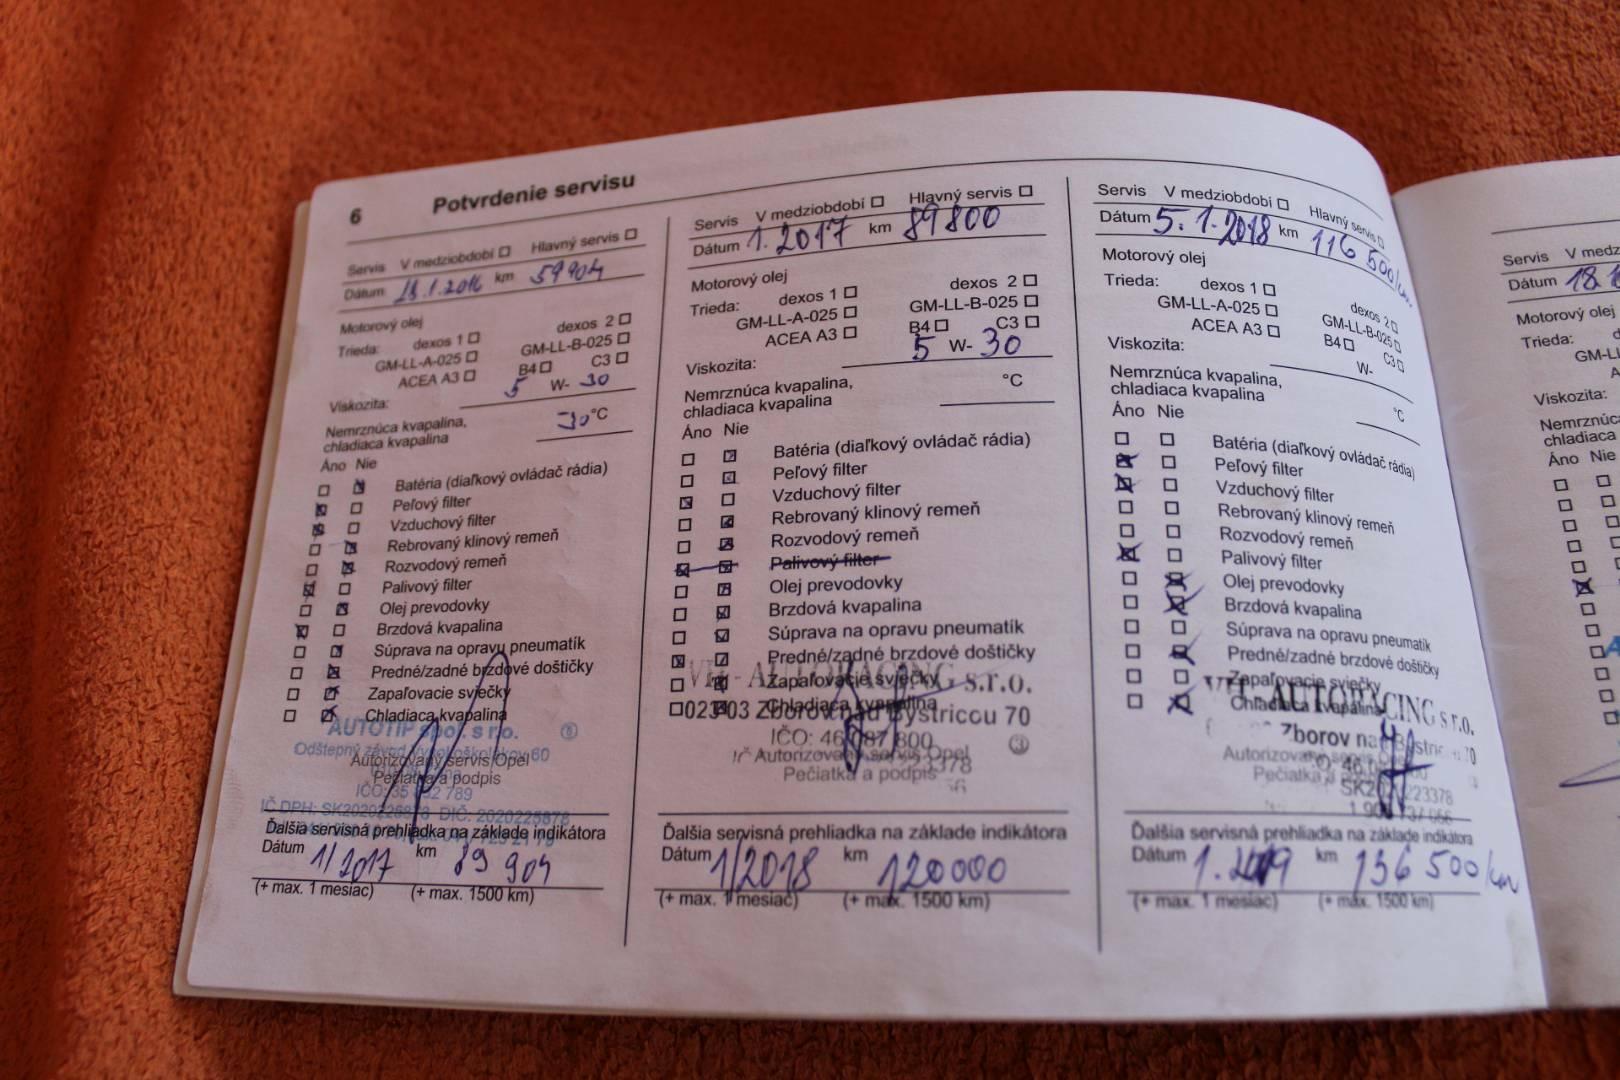 6 Potvrdenie servisu
Servis V medziobdobí Hlavný servis
Dátum 18.1.2016 km 59904
Motorový olej
Trieda: dexos 1 dexos 2
GM-LL-A-025 GM-LL-B-025
ACEA A3 B4 C3
Viskozita: 5 W- 30
Nemrznúca kvapalina,
chladiaca kvapalina -30 °C
Áno Nie
Batéria (diaľkový ovládač rádia)
Peľový filter
Vzduchový filter
Rebrovaný klinový remeň
Rozvodový remeň
Palivový filter
Olej prevodovky
Brzdová kvapalina
Súprava na opravu pneumatík
Predné/zadné brzdové doštičky
Zapaľovacie sviečky
Chladiaca kvapalina
AUTOTIP spol. s r.o.
Odštepný závod Vysokoškolákov 60
Autorizovaný servis Opel
Pečiatka a podpis
IČO: 35 789
IČ DPH: DIČ: 2020225878
Ďalšia servisná prehliadka na základe indikátora
Dátum 1/2017 km 89 904
(+ max. 1 mesiac) (+ max. 1500 km)
Servis V medziobdobí Hlavný servis
Dátum 1.2017 km 89800
Motorový olej
Trieda: dexos 1 dexos 2
GM-LL-A-025 GM-LL-B-025
ACEA A3 B4 C3
Viskozita: 5 W- 30
Nemrznúca kvapalina,
chladiaca kvapalina °C
Áno Nie
Batéria (diaľkový ovládač rádia)
Peľový filter
Vzduchový filter
Rebrovaný klinový remeň
Rozvodový remeň
Palivový filter
Olej prevodovky
Brzdová kvapalina
Súprava na opravu pneumatík
Predné/zadné brzdové doštičky
AUTORACING s.r.o.
Zapaľovacie sviečky
Chladiaca kvapalina
023 03 Zborov nad Bystricou 70
IČO: 46 087 800
Autorizovaný servis Opel
Pečiatka a podpis
Ďalšia servisná prehliadka na základe indikátora
Dátum 1/2018 km 120000
(+ max. 1 mesiac) (+ max. 1500 km)
Servis V medziobdobí Hlavný servis
Dátum 5.1.2018 km 116 500/km
Motorový olej
Trieda: dexos 1 dexos 2
GM-LL-A-025 GM-LL-B-025
ACEA A3 B4 C3
Viskozita: W-
Nemrznúca kvapalina,
chladiaca kvapalina °C
Áno Nie
Batéria (diaľkový ovládač rádia)
Peľový filter
Vzduchový filter
Rebrovaný klinový remeň
Rozvodový remeň
Palivový filter
Olej prevodovky
Brzdová kvapalina
Súprava na opravu pneumatík
Predné/zadné brzdové doštičky
Zapaľovacie sviečky
AUTORACING s.r.o.
Chladiaca kvapalina
Zborov nad Bystric 70
Autorizovaný servis Opel
Pečiatka a podpis
Ďalšia servisná prehliadka na základe indikátora
Dátum 1.2019 km 136 500/km
(+ max. 1 mesiac) (+ max. 1500 km)
Servis V medz
Dátum 18.
Motorový olej
Trieda:
GM-LL
Viskozita:
Nemrznúca
chladiaca
Áno Nie